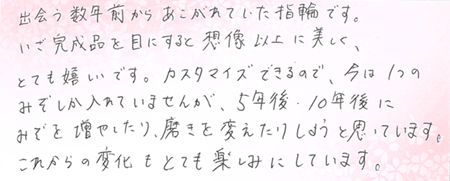 出会う数年前からあこがれていた指輪です。
いざ完成品を目にすると想像以上に美しく、
とても嬉しいです。カスタマイズできるので、今は1つの
みぞしか入れていませんが、5年後・10年後に
みぞを増やしたり、磨きを変えたりしようと思っています。
これからの変化もとても楽しみにしています。